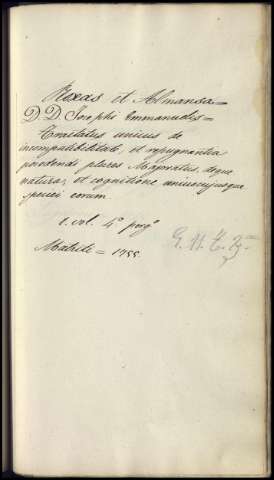 Roxas et Almansa =
D. D. Josephi Emmanuelis =
Tractatus unicus de
incompatibilitate, et repugnantia
possidendi plures Majoratus, deque
natura, et cognitione uniuscujusque
speciei eorum
1. vol. 4º pergº
Matriti = 1755.
G. H. 6